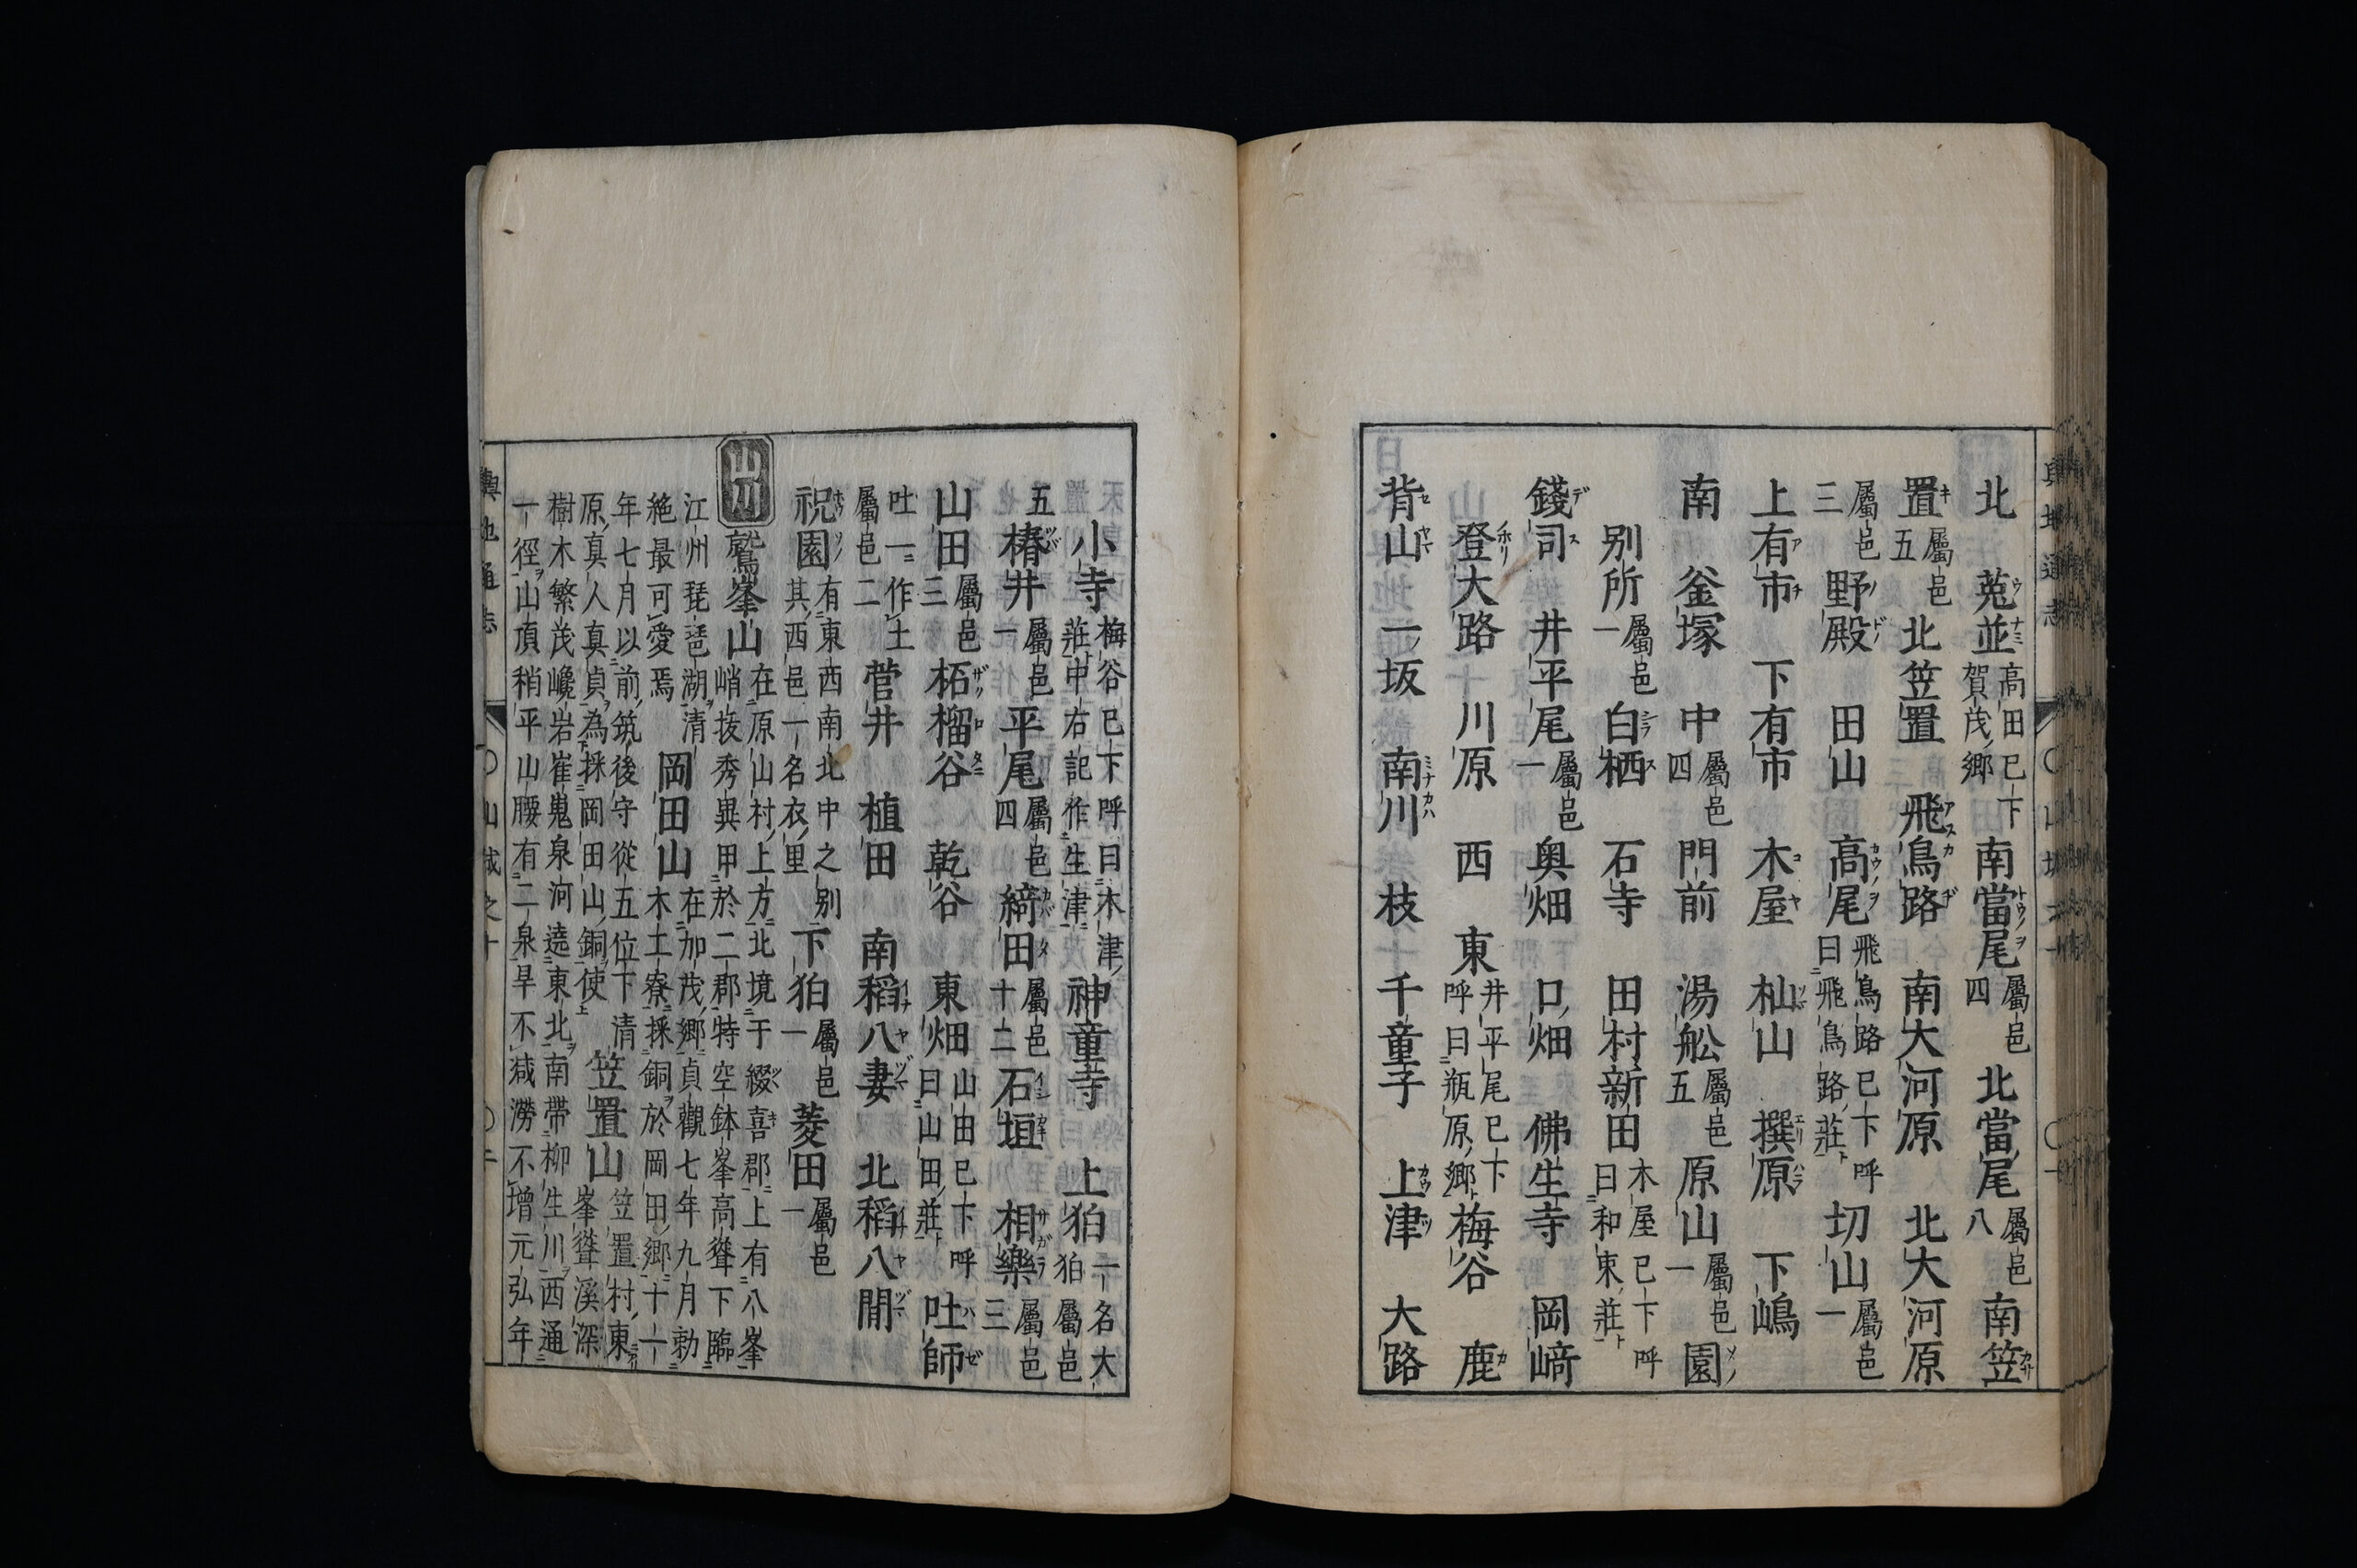 北　菟並高田已下賀茂郷　南當尾屬邑四　北當尾屬邑八　南笠
置屬邑五　北笠置　飛鳥路　南大河原　北大河原
屬邑三　野殿　田山　高尾飛鳥路已下呼曰飛鳥路莊　切山屬邑一
上有市　下有市　木屋　杣山　撰原　下嶋
南　釜塚　中屬邑四　門前　湯舩屬邑五　原山屬邑一　園
別所屬邑一　白栖　石寺　田村新田木屋已下呼曰和東莊
錢司　井平尾屬邑一　奥畑　口畑　佛生寺　岡﨑
登大路　川原　西　東井平尾已下呼曰瓶原郷　梅谷　鹿
背山　一坂　南川　枝　千童子　上津　大路
小寺梅谷已下呼曰木津莊中右記作生津　神童寺　上狛一名大狛屬邑
五　椿井屬邑一　平尾屬邑四　綺田屬邑十二　石垣　相樂屬邑三
山田屬邑三　柘榴谷　乾谷　東畑山田已下呼曰山田莊　吐師
吐一作土屬邑二　菅井　植田　南稻八妻　北稻八間
祝園有東西南北中之別其西邑一名衣里　下狛屬邑一　菱田屬邑一
山川　鷲峯山在原山村上方北境干綴喜郡上有八峯峭拔秀異甲於二郡特空鉢峯高聳下臨
江州琵琶湖清絶最可愛焉　岡田山在加茂郷貞觀七年九月勅木土寮採銅於岡田郷十一
年七月以前筑後守從五位下清原真人真貞為採岡田山銅使　笠置山笠置村東峯聳溪深
樹木繁茂巉岩崔嵬泉河遶東北南帶柳生川西通一徑山頂稍平山腰有二泉旱不減澇不增元弘年
輿地通志　山城之十　二